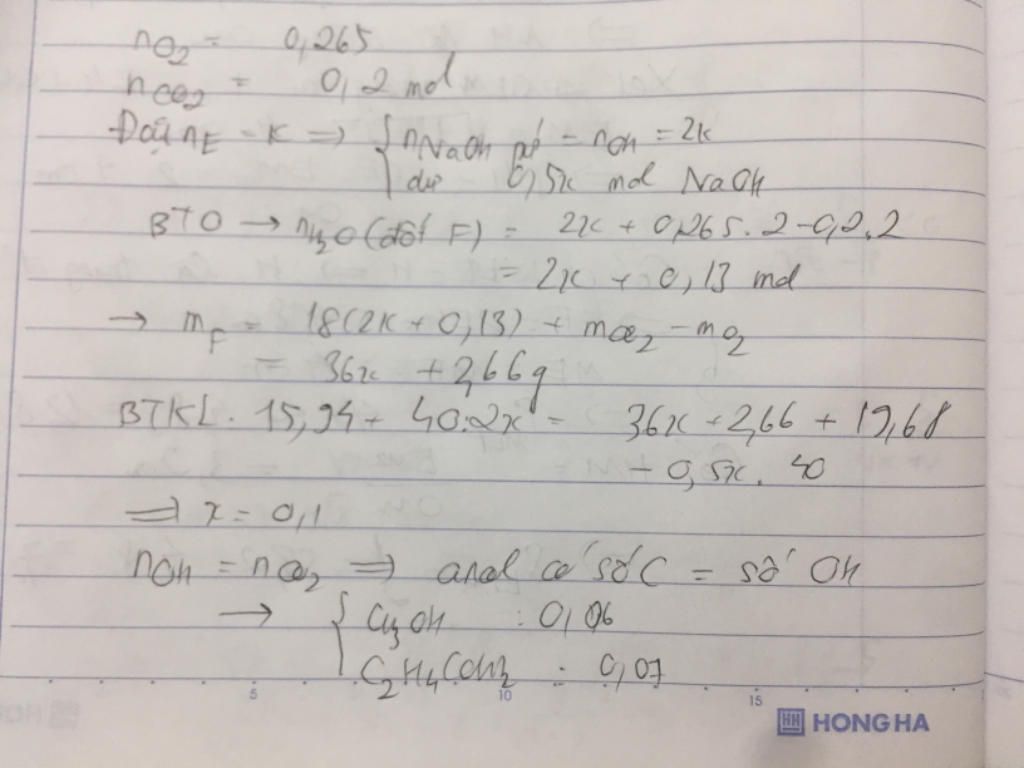 nO2 = 0,265
nCO2 = 0,2 mol
Đặt nE = x => { nNaOH pứ = nOH = 2x
dư 0,5x mol NaOH
BTO → nH2O (đốt F) = 2x + 0,265.2 - 0,2.2
= 2x + 0,13 mol
→ mF = 18(2x + 0,13) + mCO2 - mO2
= 36x + 2,66g
BTKL. 15,94 + 40.2x = 36x + 2,66 + 19,68
- 0,5x. 40
=> x = 0,1
nOH = nCO2 => ancol có số C = số OH
→ { CH3OH : 0,06
C2H4(OH)2 : 0,07
5 10 15
HH HONG HA